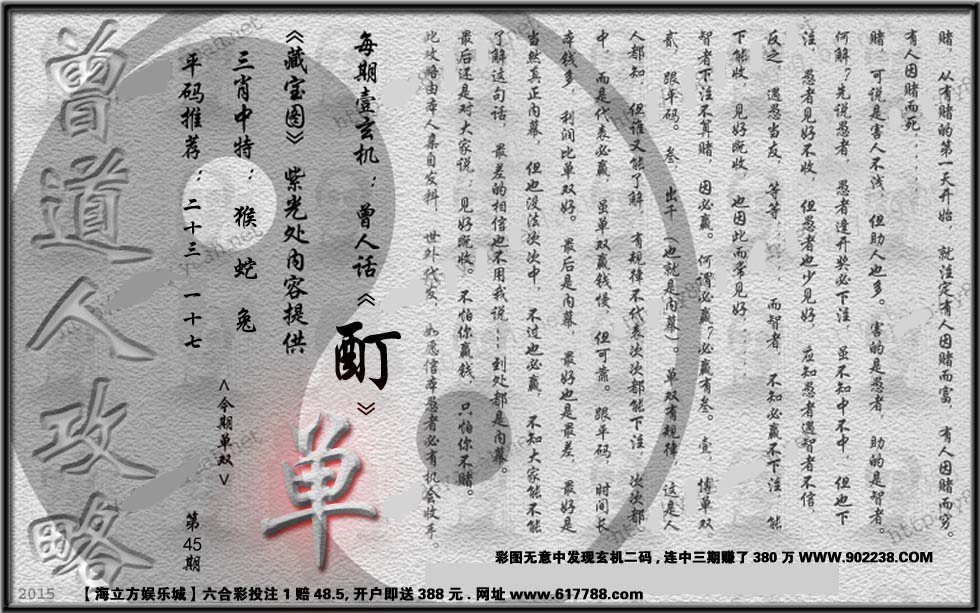 赌，从有赌的第一天开始，就注定有人因赌而富，有人因赌而穷。
有人因赌而死，......
赌，可说是害人不浅，但助人也多。害的是愚者，助的是智者。
何解？先说愚者，愚者逢开奖必下注，虽不知中不中，但也下
注，愚者见好不收，但愚者也少见好，应知愚者遇智者不信，
反之，遇愚当友，等等......而智者，不知必赢不下注，能
下能收，见好既收，也因此而常见好，......
智者下注不算赌，因必赢。何谓必赢？必赢有叁。壹，博单双，
贰，跟平码。叁，出千（也就是内幕）。单双有规律，这是人
人都知，但谁又能了解，有规律不代表次次都能下注，次次都
中，而是代表必赢，虽单双赢钱慢，但可靠。跟平码，时间长，
本钱多，利润比单双好。最后是内幕，最好也是最差，最好是
当然真正内幕，但也没法次次中，不过也必赢，不知大家能不能
了解这句话，最差的相信也不用我说......到处都是内幕。
最后还是对大家说：见好既收。不怕你赢钱，只怕你不赌。
此攻略由本人亲自发料，世外代友，如愿信本愚者必有机会收手。
每期壹玄机：曾人话《酊》
《藏宝图》紫光处内容提供
三肖中特：猴 蛇 兔
平码推荐：二十三 一十七
<今期单双>
单
第45期
曾道人攻略
彩图无意中发现玄机二码，连中三期赚了380万 WWW.902238.COM
2015
【海立方娱乐城】六合彩投注1赔48.5，开户即送388元．网址 www.617788.com